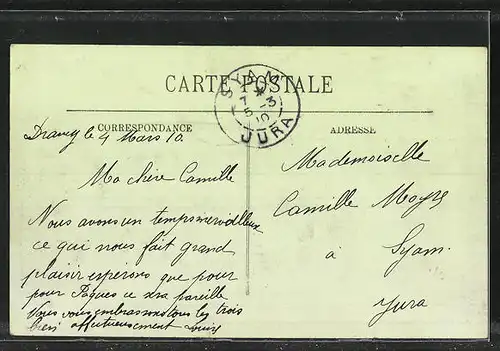 CARTE POSTALE
SYAM
7 -3
5
10
JURA
CORRESPONDANCE
ADRESSE
Drancy le 4 Mars 10.
Ma chère Camille
Nous avons un temps merveilleux
ce qui nous fait grand
plaisir espérons que pour
pour Pâques ce sera pareille
Nous vous embrassons tous les trois
bien affectueusement Louis
Mademoiselle
Camille
à
Syam.
Jura